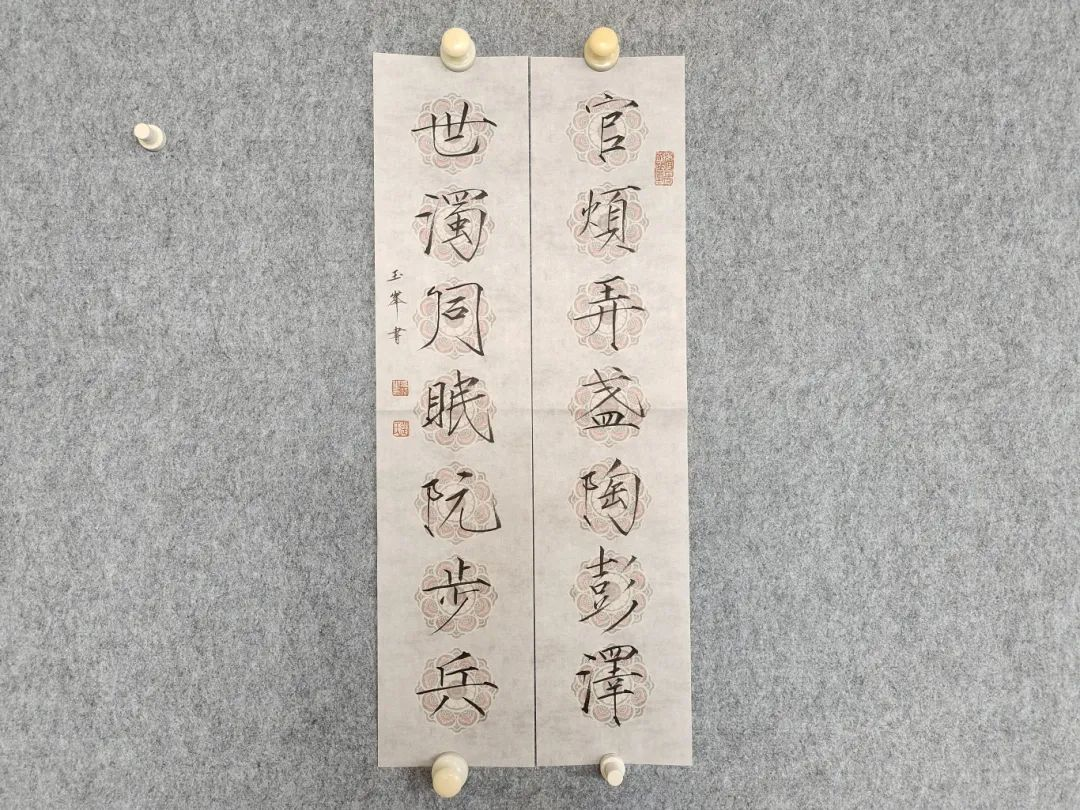 官煩弄盞陶彭澤
世濁同眠阮步兵
玉峯書